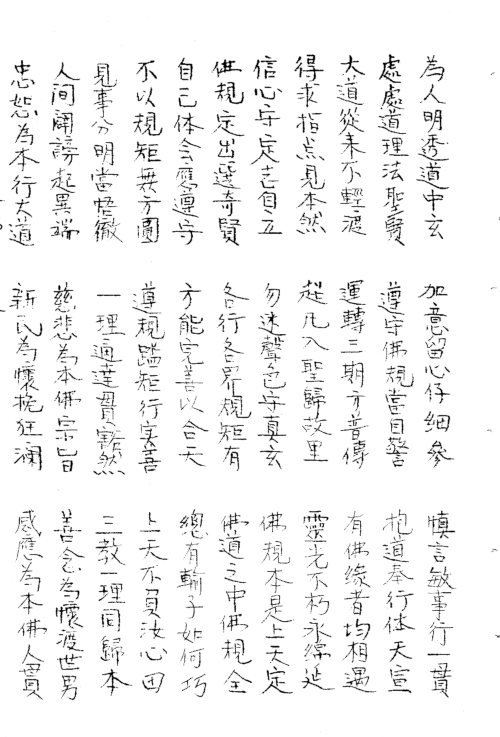 為人明透道中玄 加意留心仔細參 慎言敏事行一貫
處處道理法聖賢 遵守佛規當自警 抱道奉行体天宣
大道從来不輕渡 運轉三期方普傳 有佛緣者均相遇
得求指点見本然 起凡入聖歸故里 靈光不朽永綿延
信心守定志自立 勿迷聲色守真玄 佛規本是上天定
佛規定出選奇賢 各行各界規矩有 佛道之中佛規全
自己体会應遵守 方能完善以合天 總有輸子如何巧
不以規矩無方圓 遵規蹈矩行実善 上天不負汝心田
見事分明當悟徹 一理通達貫豁然 三教一理同歸本
人间闢謗起異端 慈悲為本佛宗旨 善念為懷渡世男
忠恕為本行大道 新民為懷挽狂瀾 感應為本佛人貫